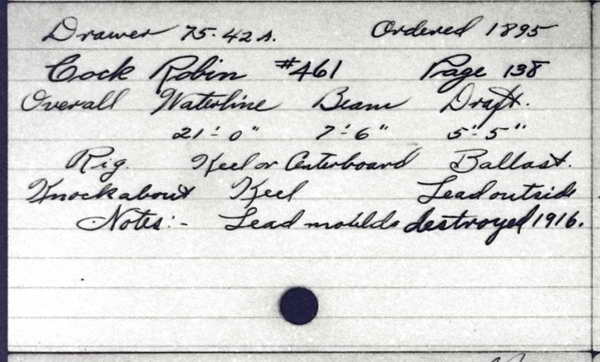 Drawer 75-42A. Ordered 1895
Cock Robin #461 Page 138
Overall Waterline Beam Draft.
21'-0" 7'-6" 5'-5"
Rig. Keel or Centerboard Ballast.
Knockabout Keel Lead outside
Notes:- Lead moulds destroyed 1916.